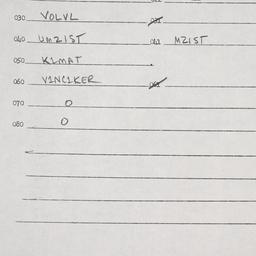 030 VOLVL 031
040 UMZIST 041 MZIST
050 KLMAT
060 VINCIKER 061
070 0
080 0